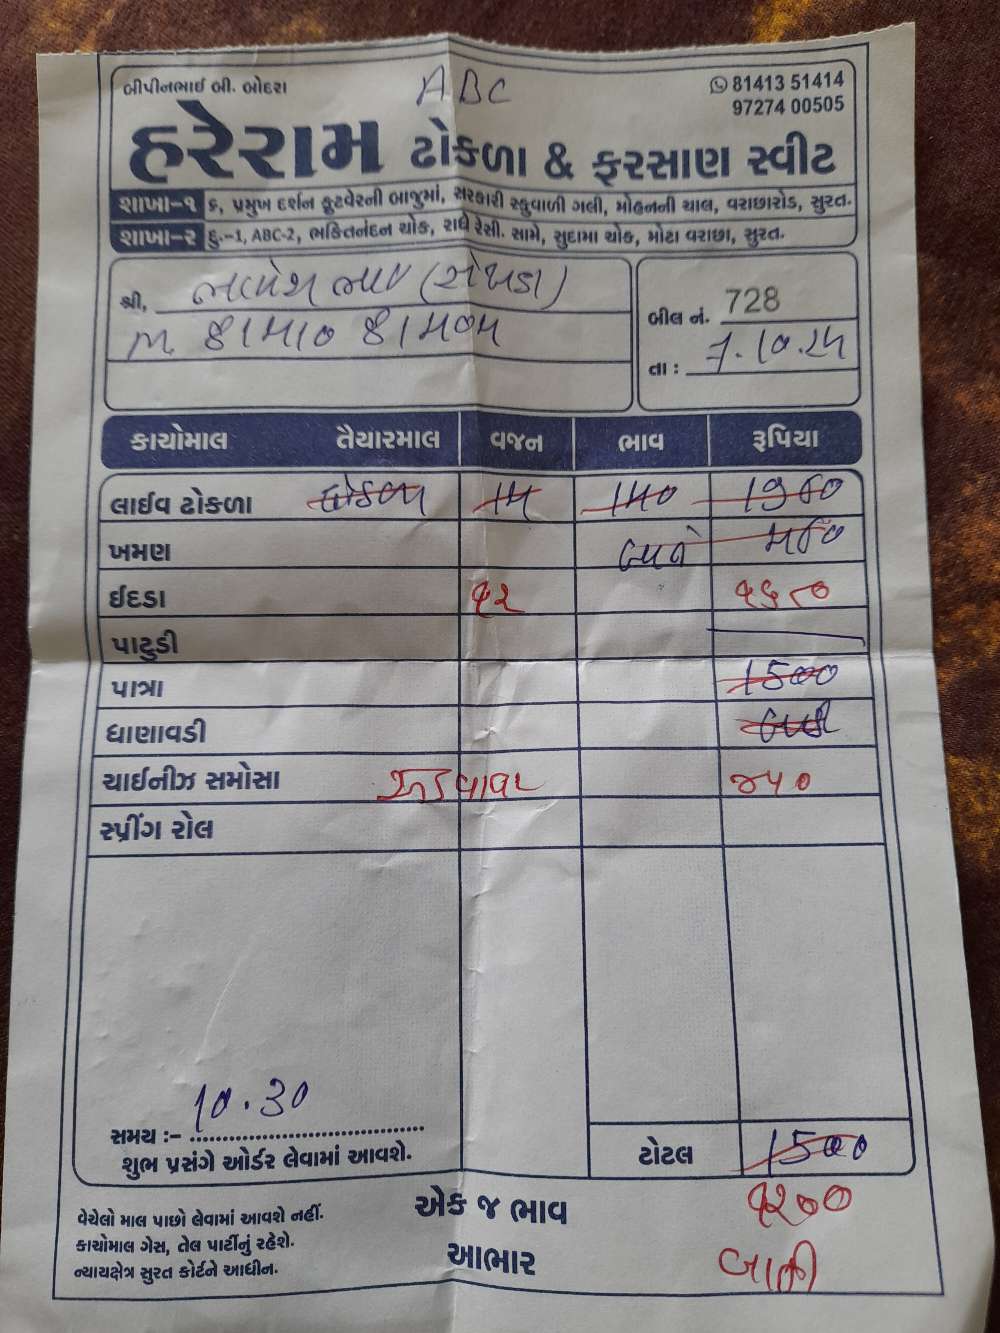 બીપીનભાઈ બી. બોદરા
ABC
81413 51414
97274 00505
હરેરામ ઢોકળા & ફરસાણ સ્વીટ
શાખા-૧ ૬, પ્રમુખ દર્શન ફૂટવેરની બાજુમાં, સરકારી સ્કુવાળી ગલી, મોહનની ચાલ, વરાછારોડ, સુરત.
શાખા-૨ દુ.-1, ABC-2, ભકિતનંદન ચોક, રાધે રેસી. સામે, સુદામા ચોક, મોટા વરાછા, સુરત.
શ્રી,
બીલ નં. 728
તા : 7.10.24
કાચોમાલ તૈયારમાલ વજન ભાવ રૂપિયા
લાઈવ ઢોકળા 14 140 1960
ખમણ
ઈદડા ૧૨ ૧૬૮૦
પાટુડી
પાત્રા 1500
ધાણાવડી
ચાઈનીઝ સમોસા
સ્પ્રીંગ રોલ
10.30
સમય :-
શુભ પ્રસંગે ઓર્ડર લેવામાં આવશે.
ટોટલ 1500
વેચેલો માલ પાછો લેવામાં આવશે નહીં.
કાચોમાલ ગેસ, તેલ પાર્ટીનું રહેશે.
ન્યાયક્ષેત્ર સુરત કોર્ટને આધીન.
એક જ ભાવ
આભાર
૧૨૦૦
બાકી